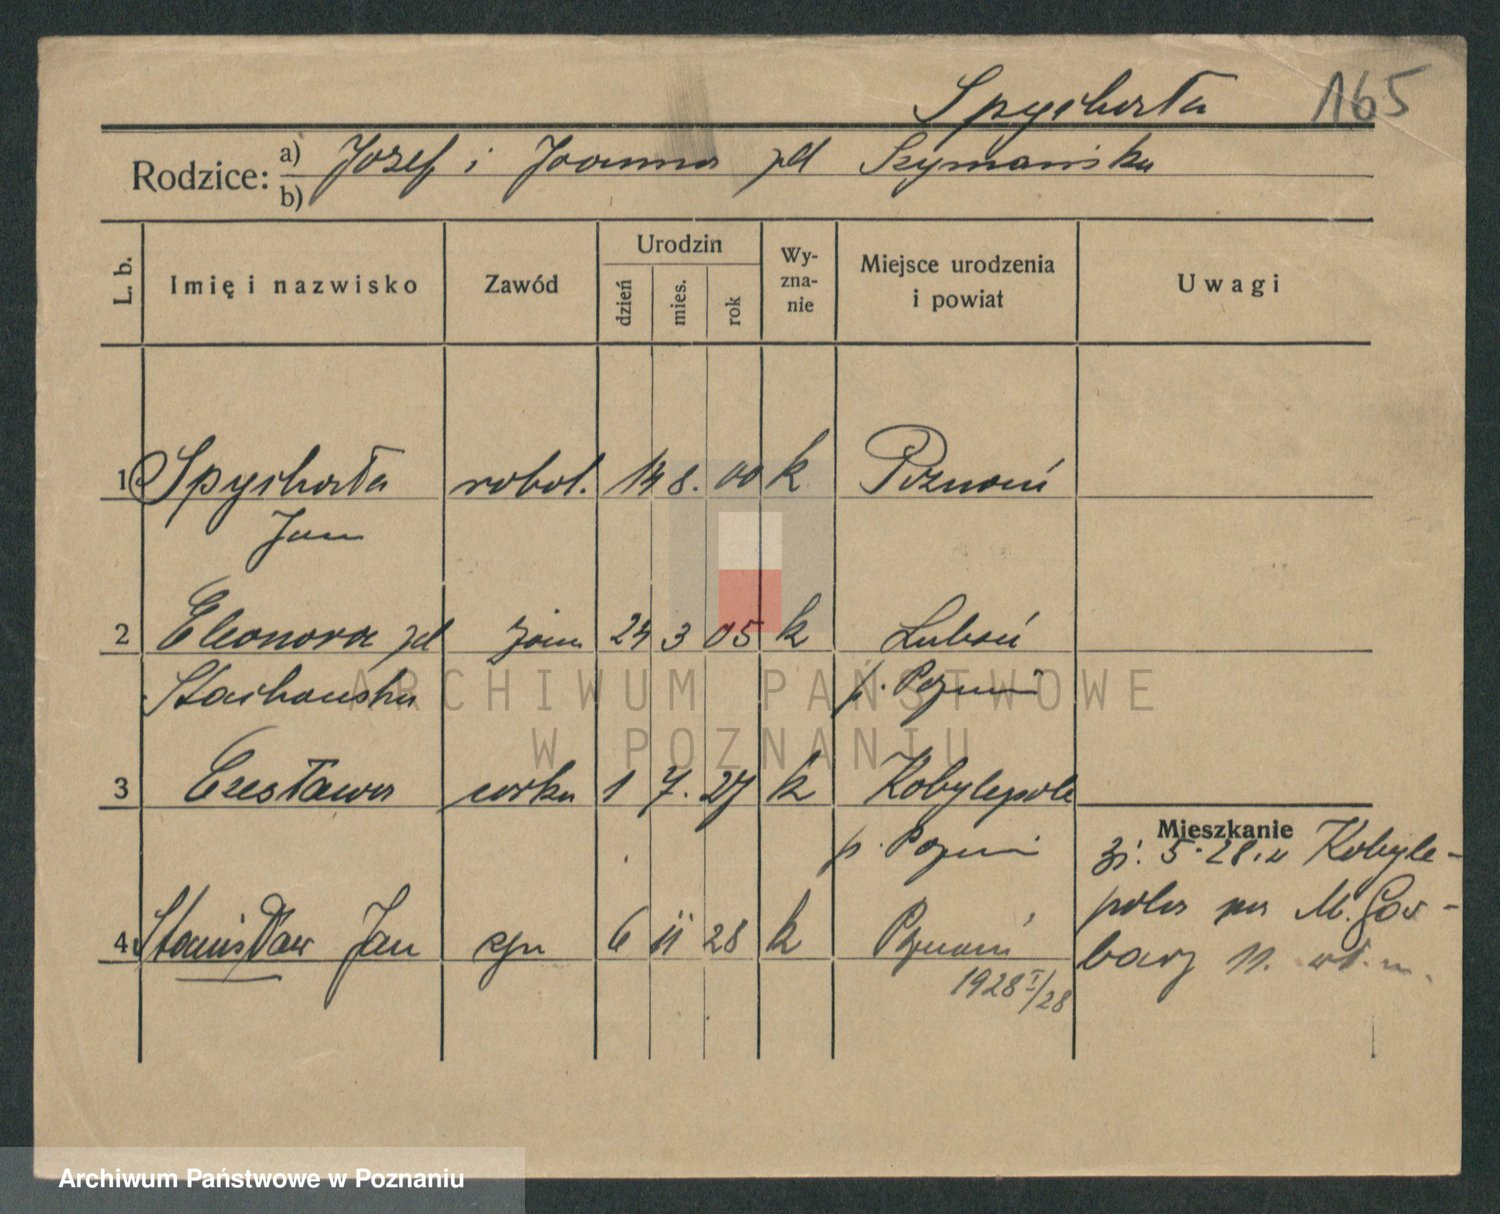 Spychała 165
Rodzice: a) Józef i Joanna zd Szymańska
b)
L. b. Imię i nazwisko Zawód Urodzin dzień mies. rok Wy-zna-nie Miejsce urodzenia i powiat Uwagi
1 Spychała robot. 14 8. 00 k Poznań
Jan
2 Eleonora zd żona 24 3 05 k Luboń
Stachowska p. Poznań
3 Czesława córka 1 7. 27 k Kobylepole
Mieszkanie
p. Poznań 5. 28. Kobyle-
pola na M. Gar-
4 Stanisław Jan syn 6 11 28 k Poznań
bary 11.
1928 I/28
ARCHIWUM PAŃSTWOWE
W POZNANIU
Archiwum Państwowe w Poznaniu